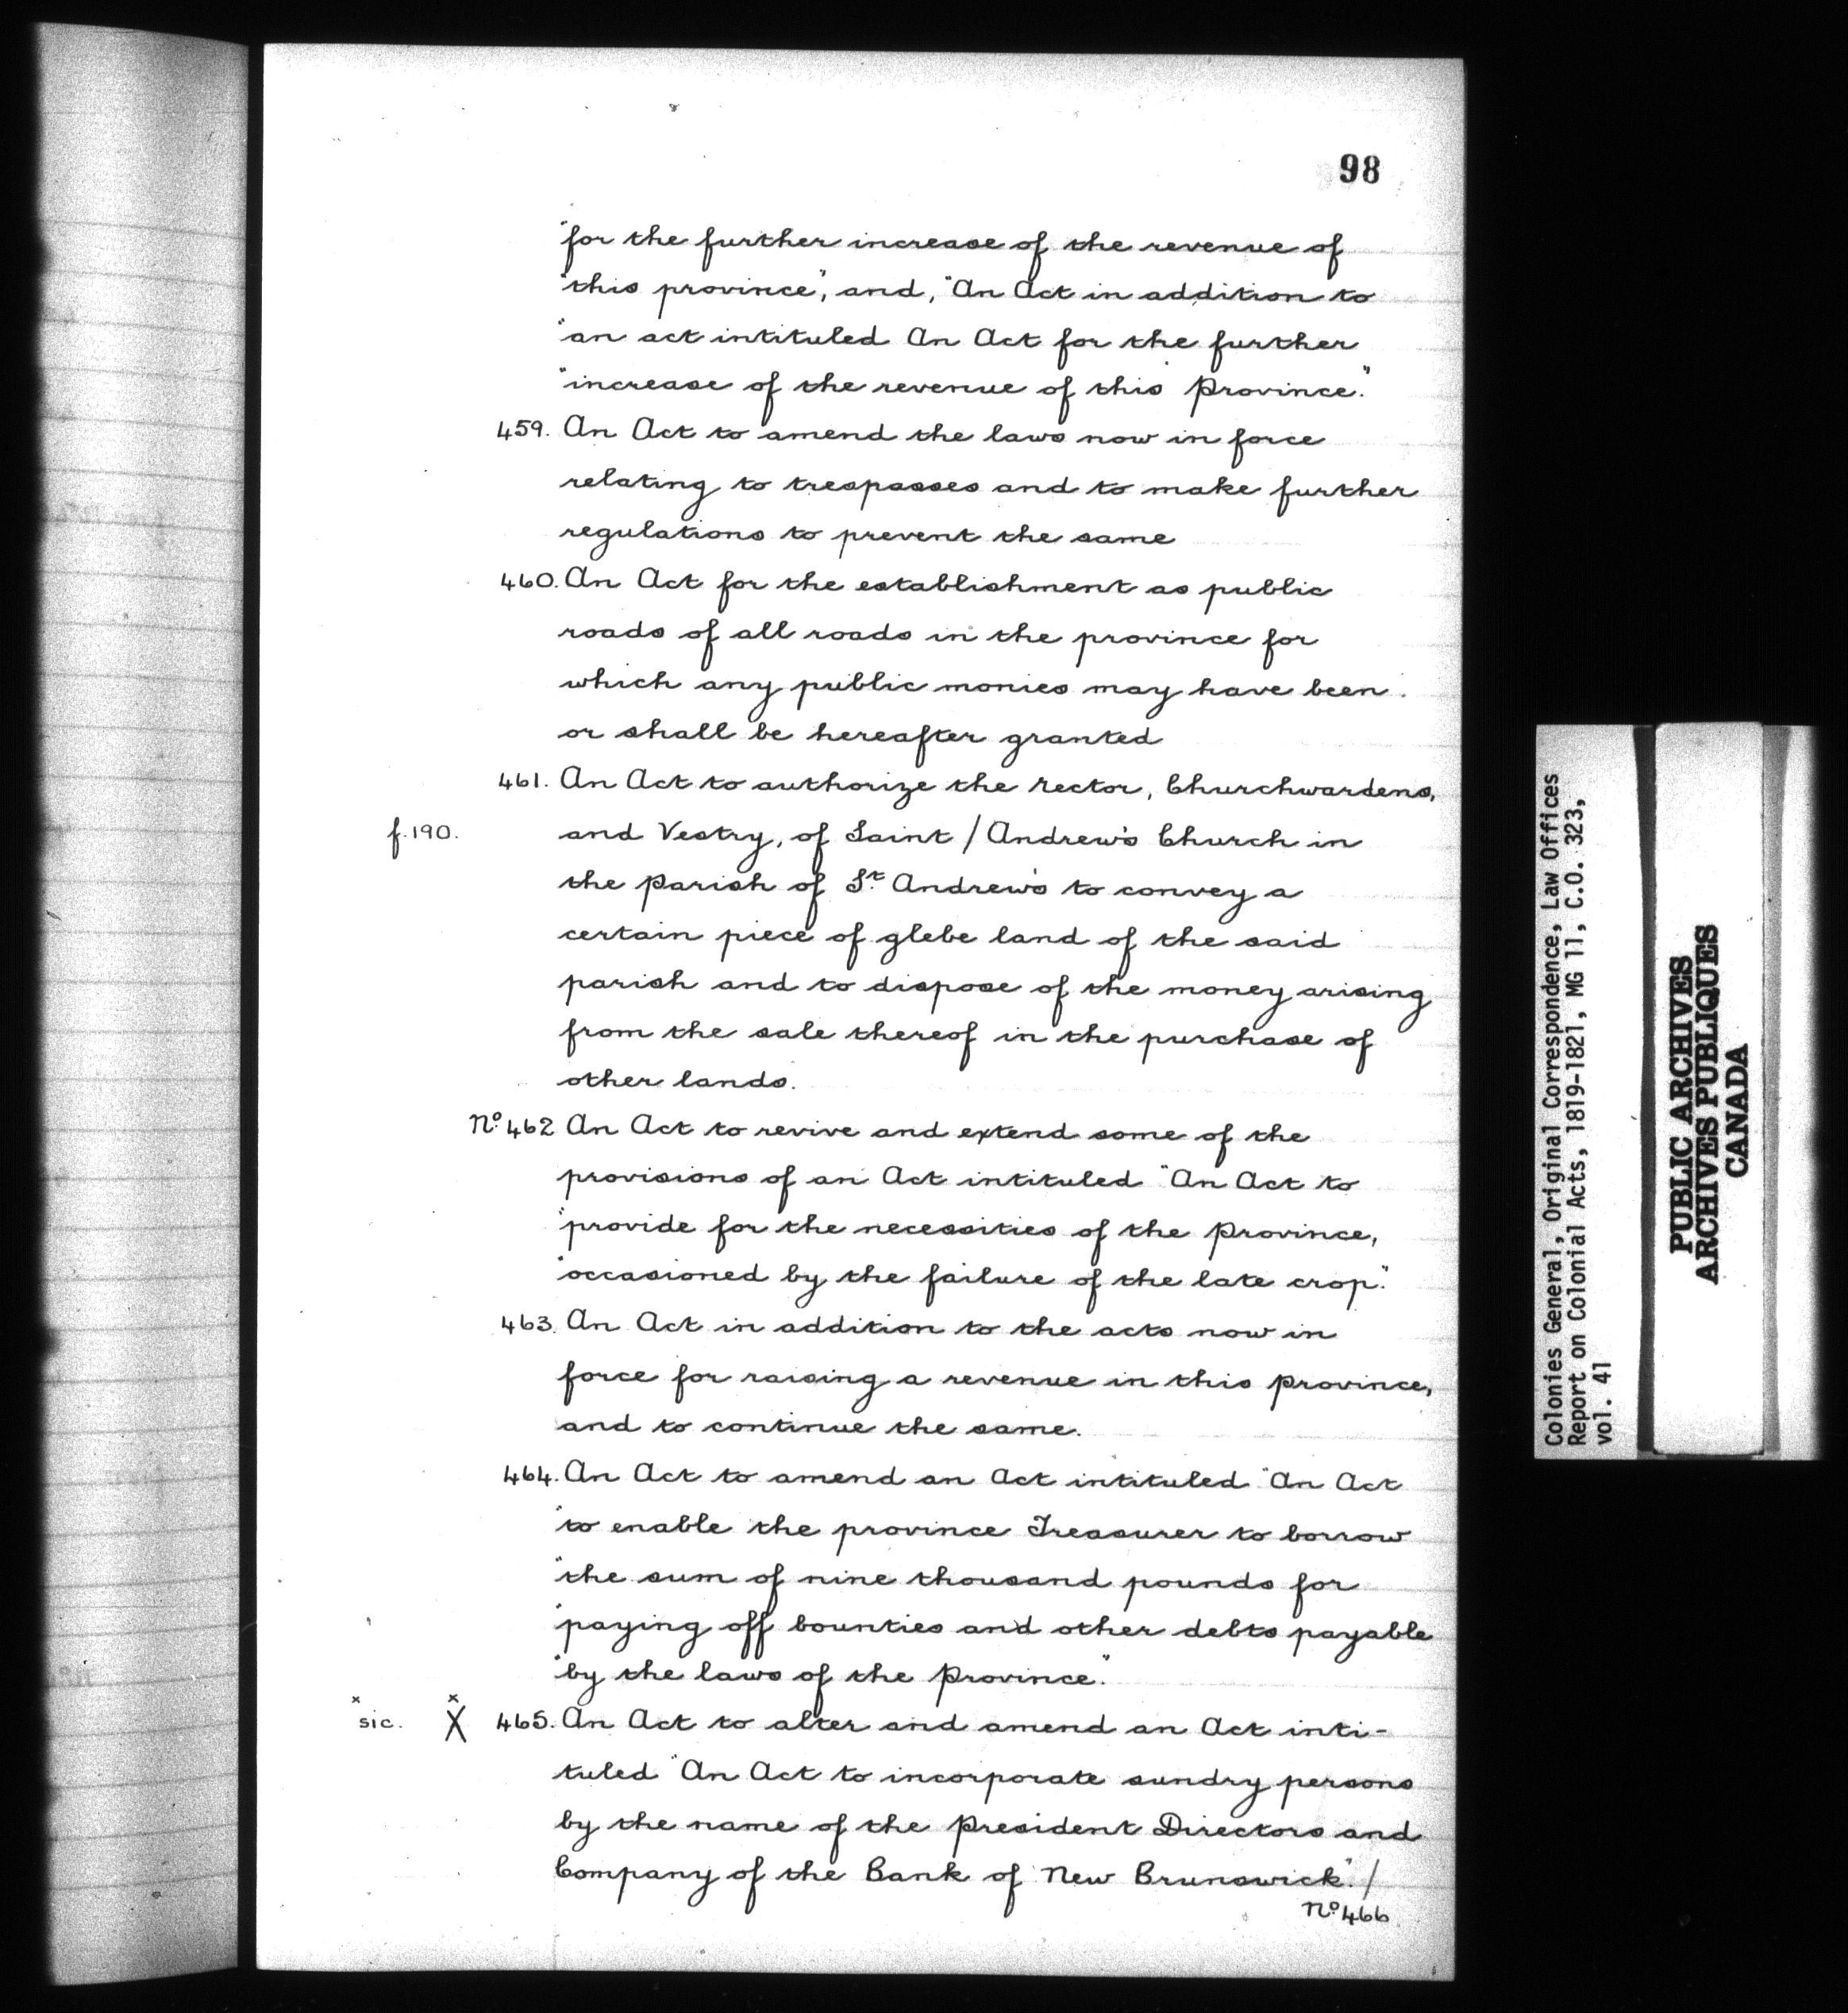 98
"for the further increase of the revenue of
"this province", and, "An Act in addition to
"an act intituled An Act for the further
"increase of the revenue of this Province."
459. An Act to amend the laws now in force
relating to trespasses and to make further
regulations to prevent the same
460. An Act for the establishment as public
roads of all roads in the province for
which any public monies may have been
or shall be hereafter granted
461. An Act to authorize the Rector, Churchwardens,
f.190. and Vestry, of Saint / Andrew's Church in
the Parish of St. Andrew's to convey a
certain piece of glebe land of the said
parish and to dispose of the money arising
from the sale thereof in the purchase of
other lands.
No. 462 An Act to revive and extend some of the
provisions of an Act intituled "An Act to
"provide for the necessities of the Province,
"occasioned by the failure of the late crop."
463. An Act in addition to the acts now in
force for raising a revenue in this Province,
and to continue the same.
464. An Act to amend an Act intituled "An Act
"to enable the province Treasurer to borrow
"the sum of nine thousand pounds for
"paying off bounties and other debts payable
"by the laws of the Province."
x sic. x X 465. An Act to alter and amend an Act inti-
tuled "An Act to incorporate sundry persons
by the name of the President Directors and
Company of the Bank of New Brunswick"./
No. 466
Colonies General, Original Correspondence, Law Offices
Report on Colonial Acts, 1819-1821, MG 11, C.O. 323,
vol. 41
PUBLIC ARCHIVES
ARCHIVES PUBLIQUES
CANADA